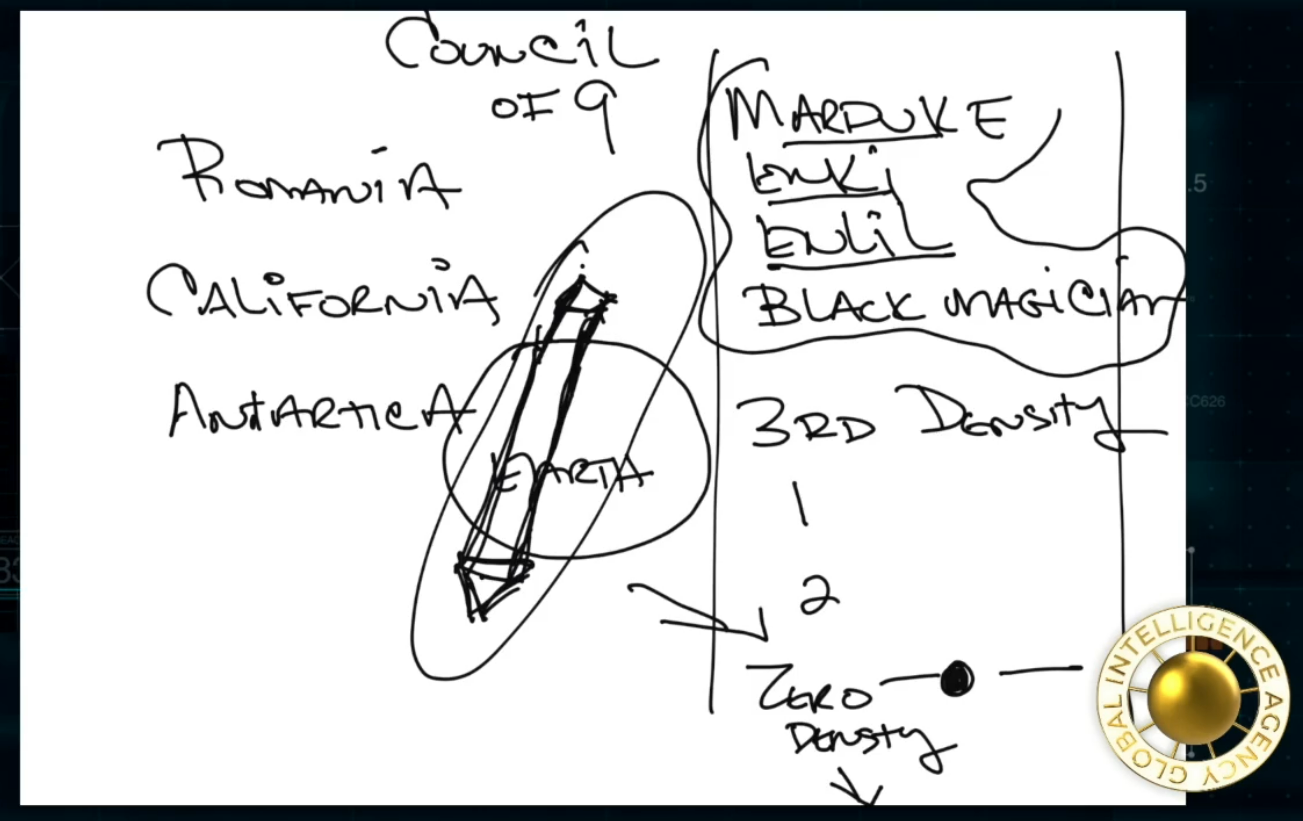 COUNCiL
OF 9
ROMANiA
CALiFORNiA
ANTARTiCA
EARTH
MARDUKE
ENKi
ENLiL
BLACK MAGiCiAN
3RD DENSiTy
1
2
ZERO
DENSTy
GLOBAL INTELLIGENCE AGENCY
.5
C626